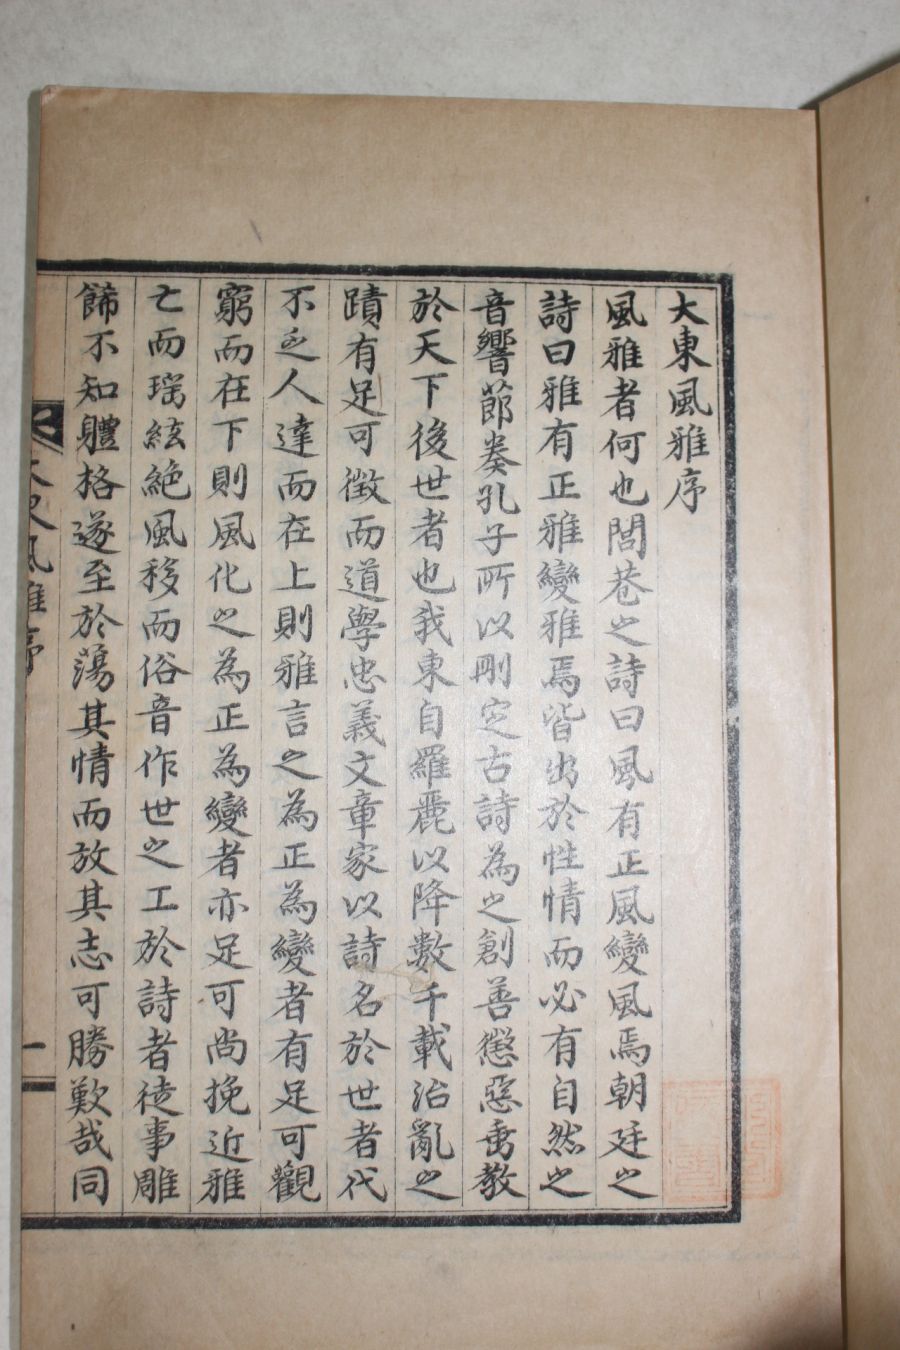 大東風雅序
風雅者何也閭巷之詩曰風有正風變風焉朝廷之
詩曰雅有正雅變雅焉皆出於性情而必有自然之
音響節奏孔子所以刪定古詩為之創善懲惡垂教
於天下後世者也我東自羅麗以降數千載治亂之
蹟有足可徵而道學忠義文章家以詩名於世者代
不乏人達而在上則雅言之為正為變者有足可觀
窮而在下則風化之為正為變者亦足可尚挽近雅
亡而瑶絃絶風移而俗音作世之工於詩者徒事雕
餙不知體格遂至於蕩其情而放其志可勝歎哉同
大東風雅序
一